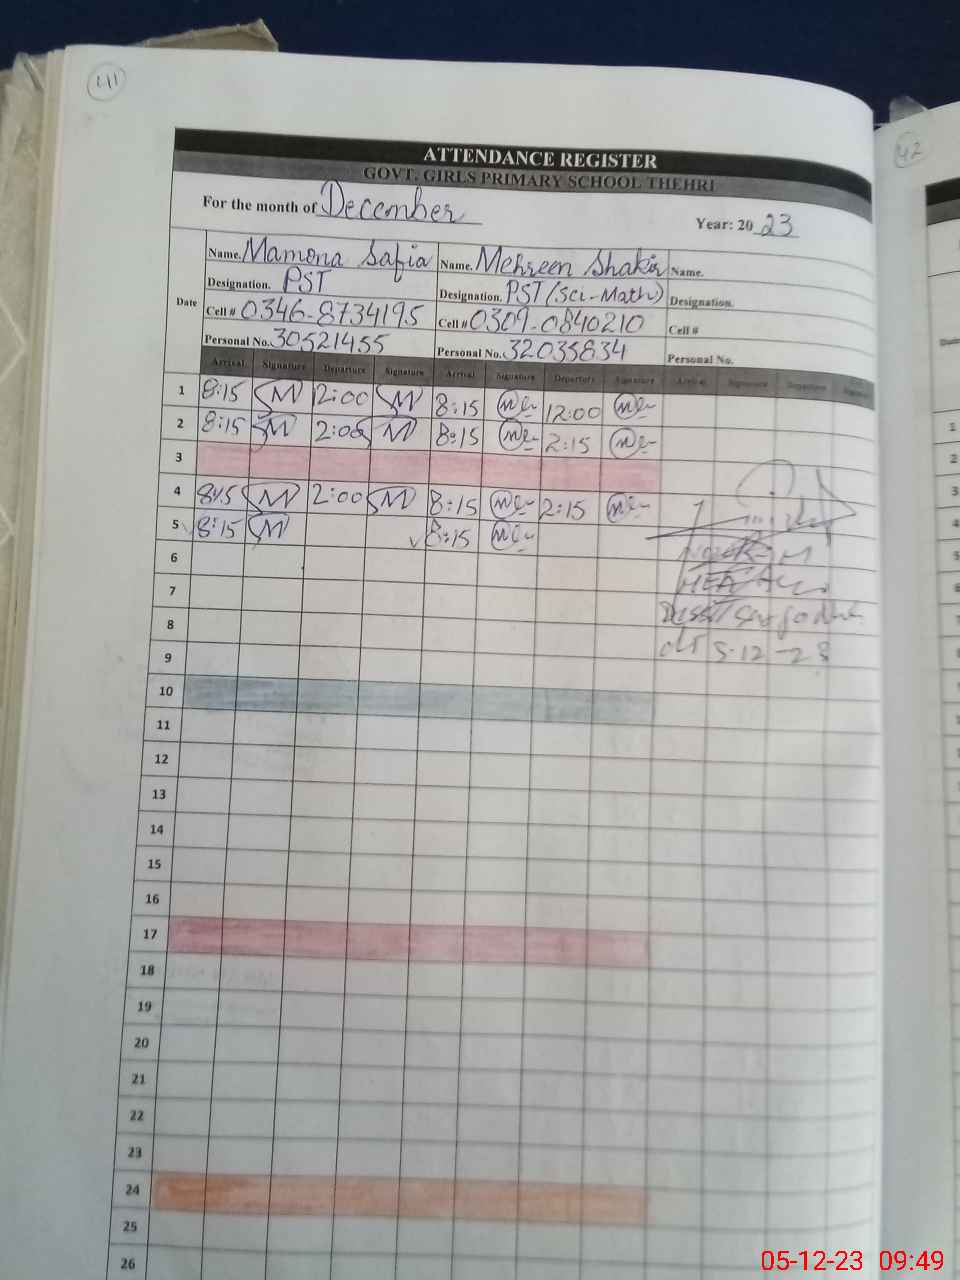 41
42
ATTENDANCE REGISTER
GOVT. GIRLS PRIMARY SCHOOL THEHRI
For the month of December Year: 2023
Name. Mamona Safia Name. Mehreen Shakir Name.
Designation. PST Designation. PST (Sci-Math) Designation.
Date
Cell # 0346-8734195 Cell # 0309-0840210 Cell #
Personal No. 30521455 Personal No. 32035834 Personal No.
Arrival Signature Departure Signature Arrival Signature Departure Signature Arrival Signature Departure
1 8:15 M 12:00 M 8:15 12:00
2 8:15 M 2:00 M 8:15 2:15
3
4 8:15 M 2:00 M 8:15 2:15
5 8:15 M 8:15
6
7 MEA
8
9 5-12-23
10
11
12
13
14
15
16
17
18
19
20
21
22
23
24
25
26
1
2
3
4
5
6
05-12-23 09:49